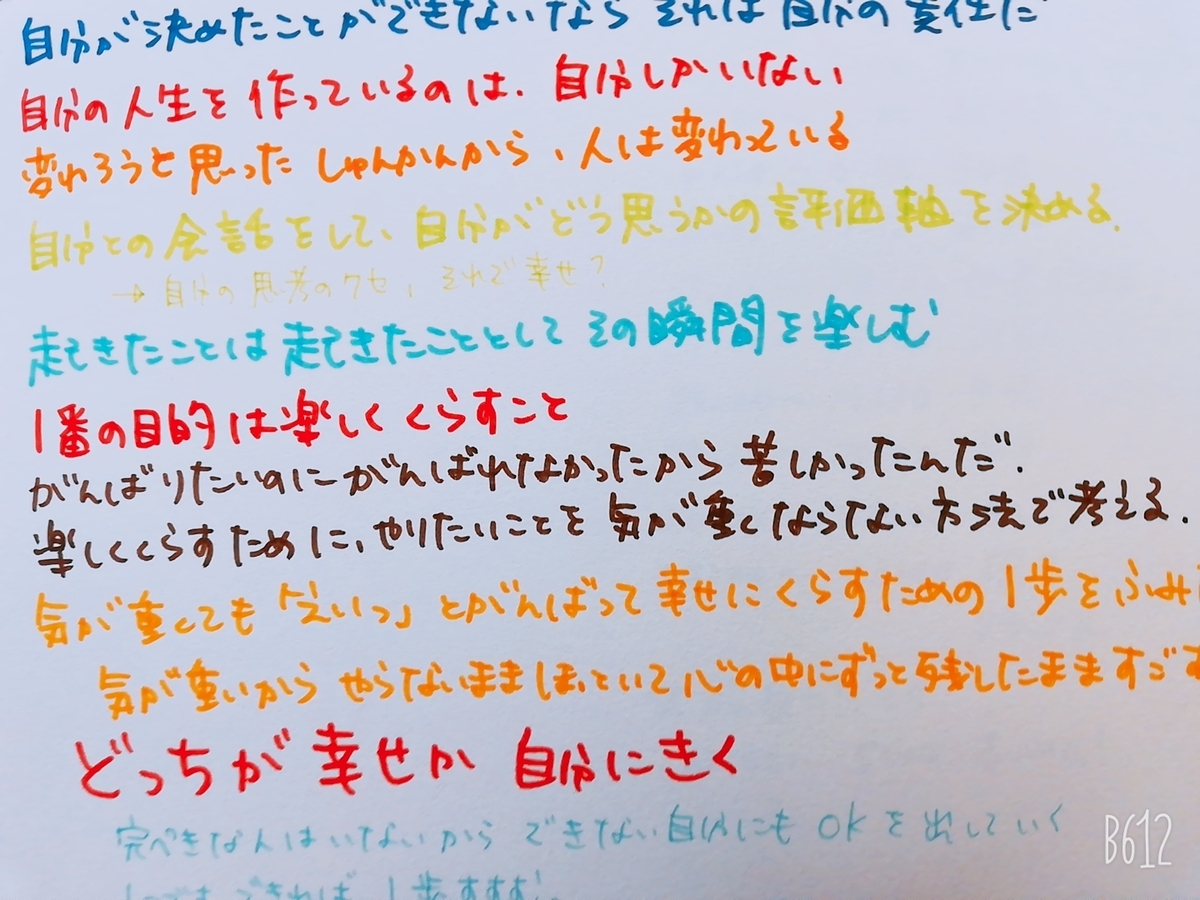 自分が決めたことができないなら それは自分の責任だ
自分の人生を作っているのは、自分しかいない
変わろうと思った しゅんかんから、人は変わっている
自分との会話をして、自分がどう思うかの評価軸を決める.
→ 自分の思考のクセ, それで幸せ?
起きたことは起きたこととして その瞬間を楽しむ
1番の目的は楽しくくらすこと
がんばりたいのにがんばれなかったから苦しかったんだ.
楽しくくらすために、やりたいことを 気が重くならない方法で考える.
気が重くても「えいっ」とがんばって幸せにくらすための1歩をふみ
気が重いから やらないままほっといて心の中にずっと残したまますごす
どっちが幸せか 自分にきく
完ぺきな人はいないから できない自分にもOKを出していく
1つでもできれば 1歩すすむ.
B612